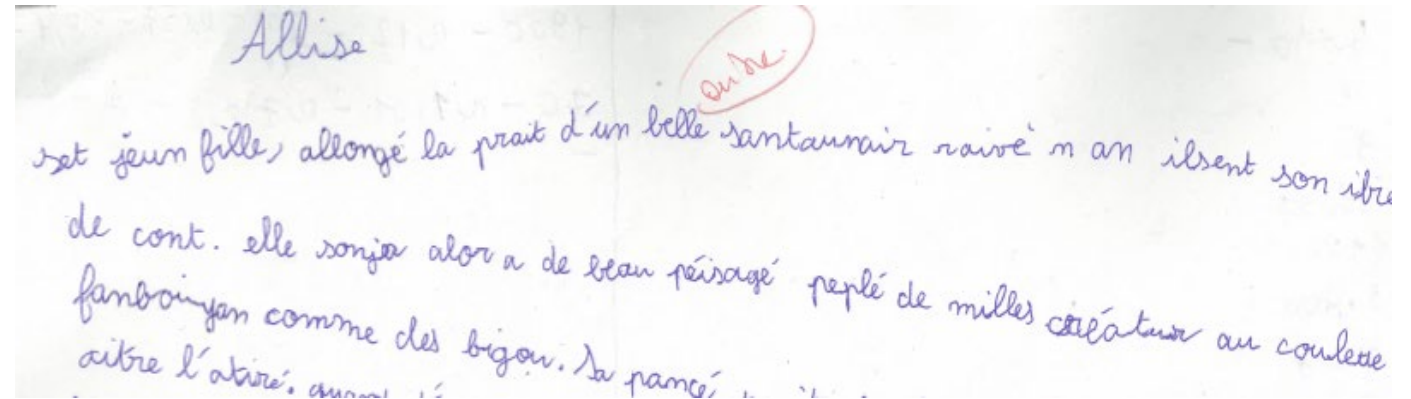 Allise
set jeun fille, allongé la prait d'un belle santaunair raivé n an ilsent son ibre
de cont. elle sonja alor a de beau péisagé peplé de milles créatur au couleure
fanbouyan comme des bigou. Sa pancé
aitre l'atiré.